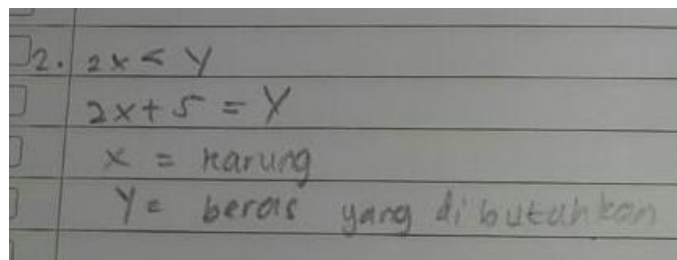 2. 2x < Y
2x + 5 = Y
x = karung
Y = beras yang dibutuhkan